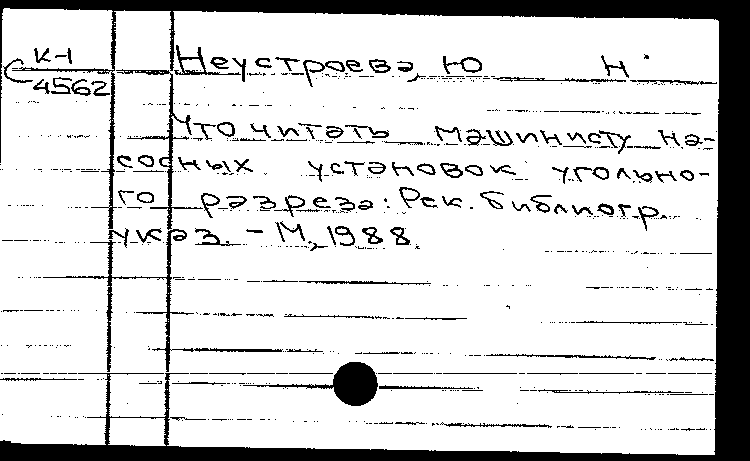 К-1
4562
Неустроева, Ю Н.
Что читать машинисту на-
сосных установок угольно-
го разреза: Рек. библиогр.
указ. - М, 1988.